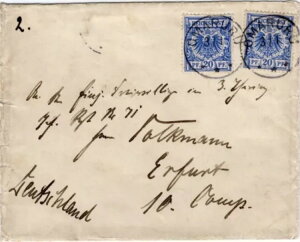 2.
OMARURU
20 PF 20 PF
An den Einj. Freiwilligen im 3. Thüring
Inf. Rgt Nr 71
Herrn Volkmann
Erfurt
Deutschland
10. Comp.